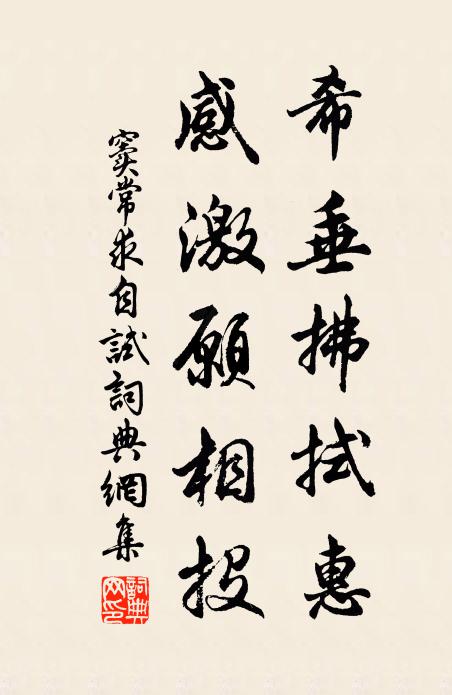 希垂拂拭惠
感激願相投
竇常求自試詞典網集
詞典網印